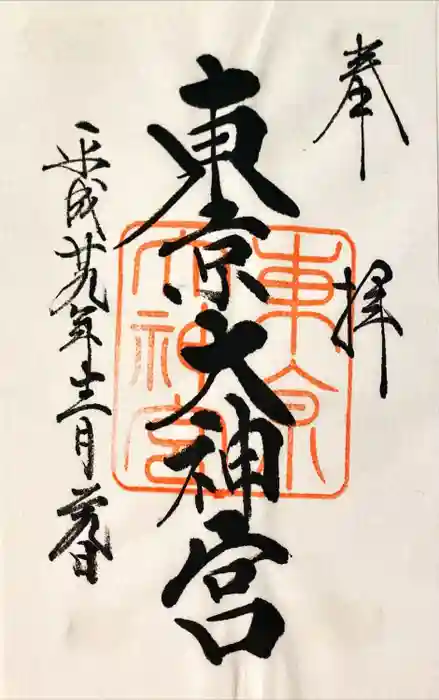 奉拝
東京大神宮
東京大神宮
平成廿九年十二月廿九日